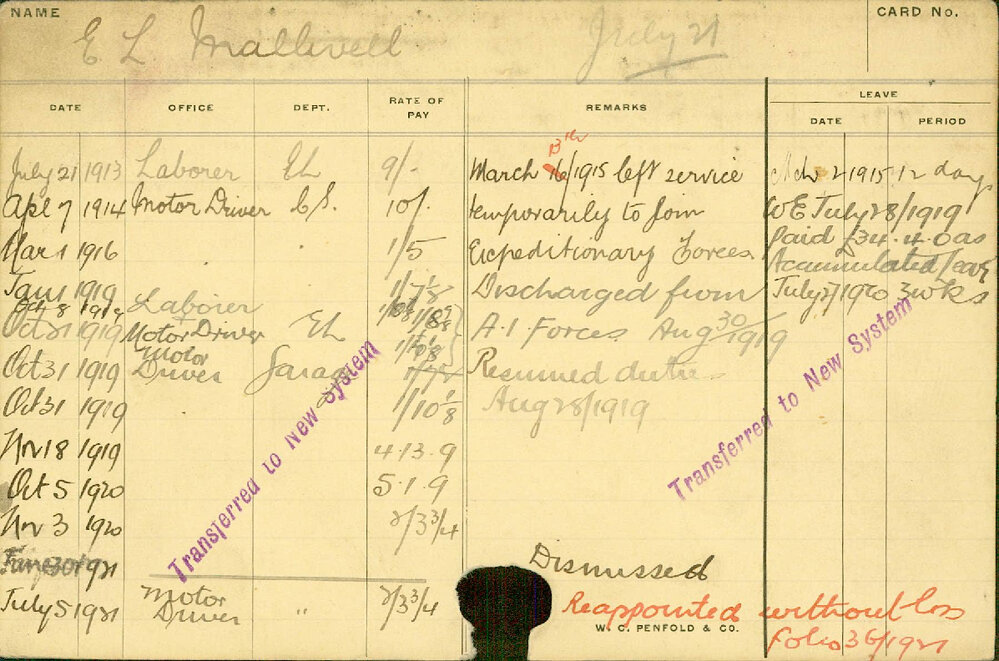 NAME E L Mallivell July 21 CARD No.
DATE OFFICE DEPT. RATE OF PAY REMARKS LEAVE
DATE PERIOD
July 21 1913 Laborer EL 9/- March 16/1915 left service 2 1915 12 days
13th
Apl 7 1914 Motor Driver C.S. 10/. temporarily to join WE July 28/1919
Mar 1 1916 " 1/5 Expeditionary Forces Paid £34.4.0 as
Accumulated leave
Jan 1 1919 1/7⅛ Discharged from July 27/1920 3 wks
Oct 8 1919 Laborer
Oct 31 1919 Motor Driver EL A.I. Forces Aug 30/1919
Oct 31 1919 Motor Driver Garage Resumed duties
Oct 31 1919 1/10⅛ Aug 28/1919
Nov 18 1919 4.13.9
Oct 5 1920 5.1.9
Nov 3 1920 2/3¾
June 30 1921 Dismissed
July 5 1921 Motor Driver " 2/3¾ Reappointed without loss
folio 36/1921
Transferred to New System
Transferred to New System
W. C. PENFOLD & CO.